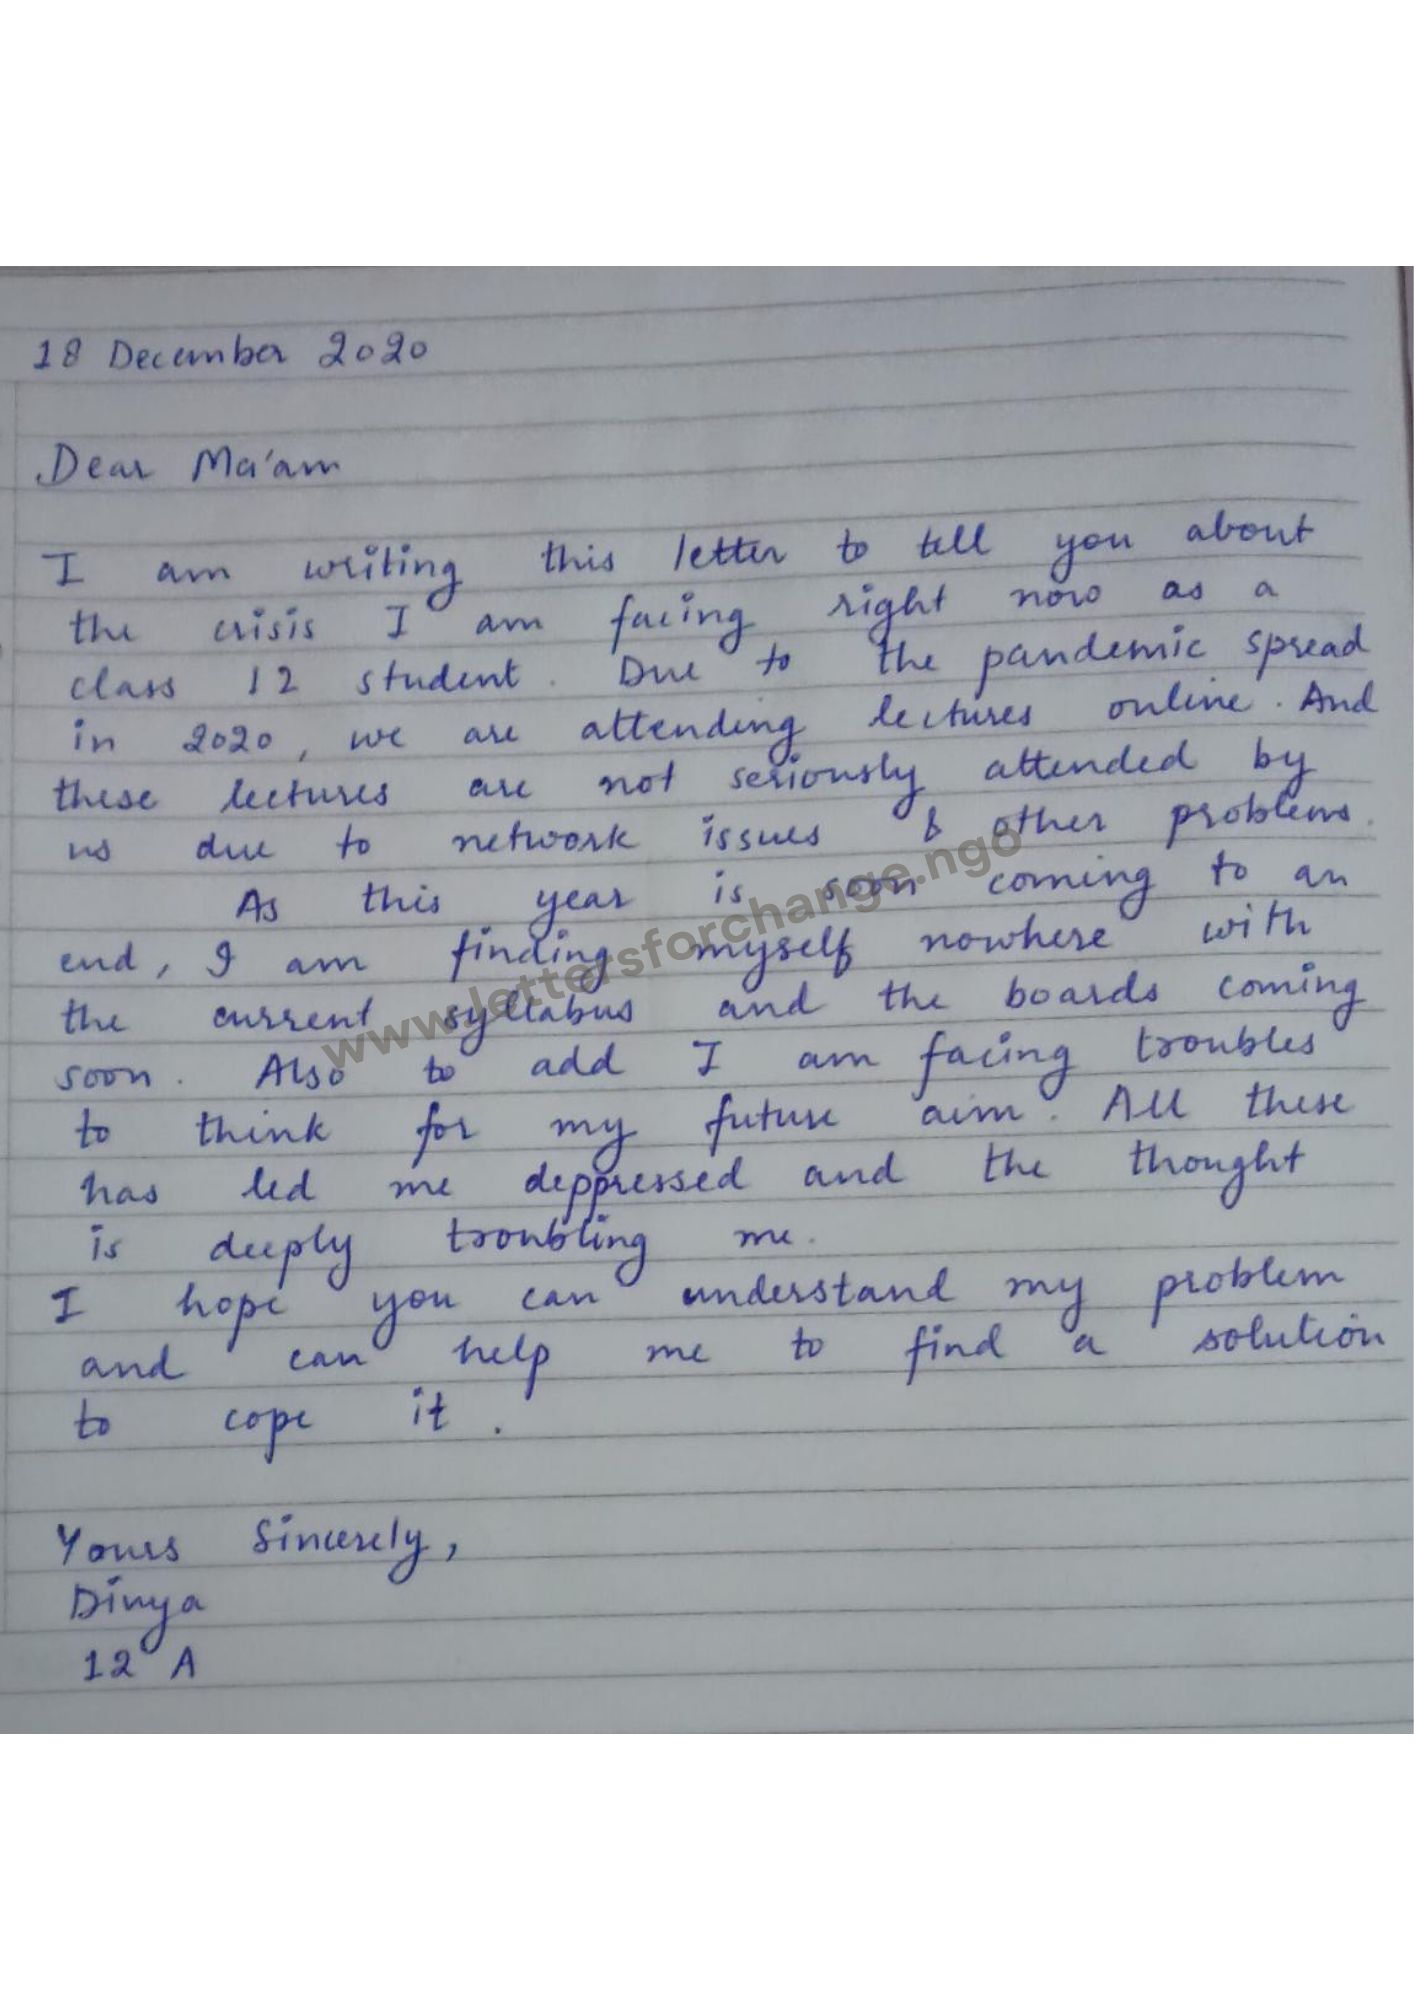 18 December 2020
Dear Ma'am
I am writing this letter to tell you about
the crisis I am facing right now as a
class 12 student. Due to the pandemic spread
in 2020, we are attending lectures online. And
these lectures are not seriously attended by
us due to network issues & other problems.
As this year is soon coming to an
end, I am finding myself nowhere with
the current syllabus and the boards coming
soon. Also to add I am facing troubles
to think for my future aim. All these
has led me deppressed and the thought
is deeply troubling me.
I hope you can understand my problem
and can help me to find a solution
to cope it.
Yours Sincerely,
Divya
12 A
www.lettersforchange.ngo